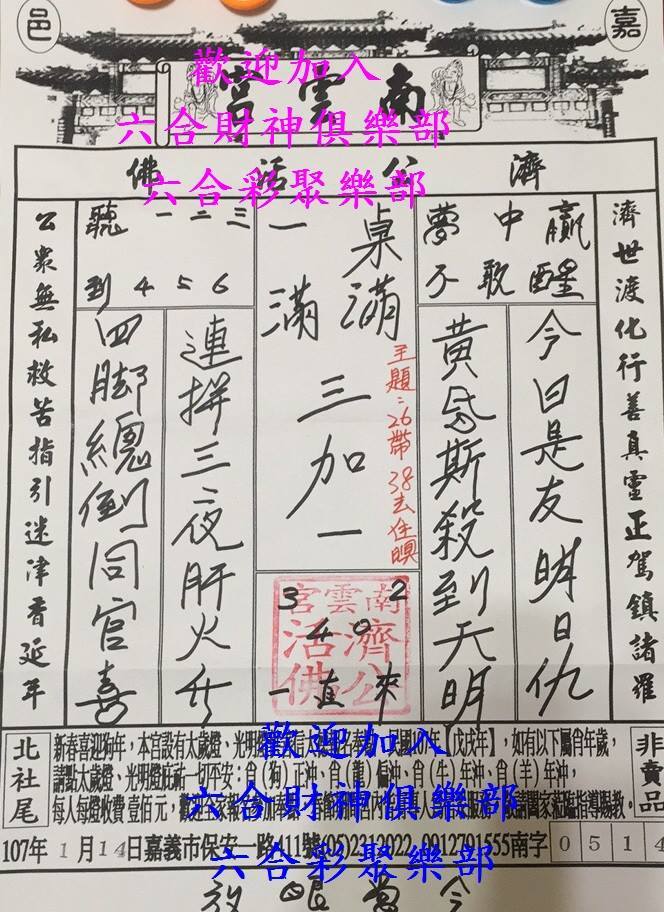 嘉邑
南雲宮
歡迎加入
六合財神俱樂部
六合彩聚樂部
濟公活佛
濟世渡化行善真靈正駕鎮諸羅
贏中夢
醒敢不
今日是友明日仇
黃昏斯殺到天明
桌一
滿滿
三加一
主題:26帶38去住暝
南雲宮
濟公活佛
2 3
0 4
來直一
三二一聽
6 5 4 到
連拼三夜肝火升
四脚總倒同官喜
公眾無私救苦指引迷津香延年
北社尾
非賣品
新春喜迎狗年,本宮設有太歲燈、光明燈
【戊戌年】,如有以下屬肖年歲,
請點太歲燈、光明燈庇祐一切平安:肖(狗)正沖,肖(龍)偏沖,肖(牛)年沖,肖(羊)年沖,
每人每燈收費壹佰元,
歡迎加入
六合財神俱樂部
六合彩聚樂部
107年1月14日嘉義市保安一路411號(05)2312022.0912791555南字0514